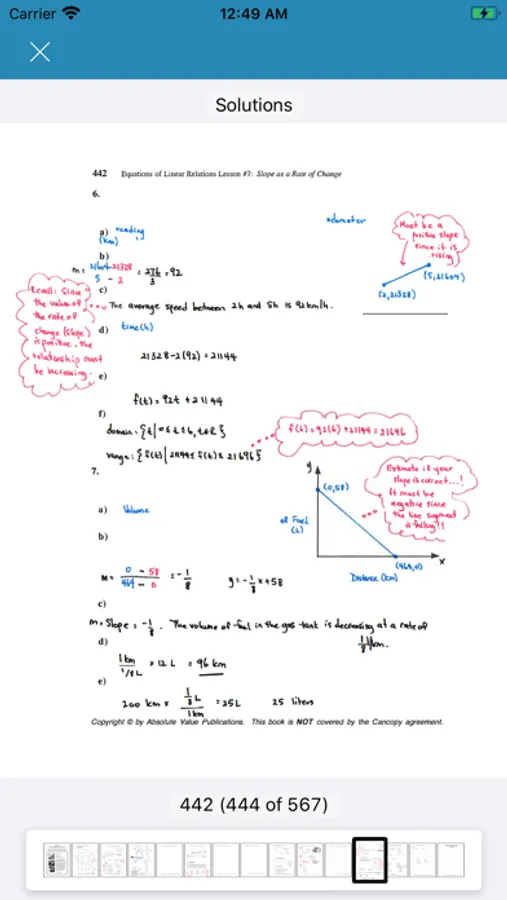 Carrier 12:49 AM
Solutions
442 Equations of Linear Relations Lesson #7: Slope as a Rate of Change
6.
odometer
a) reading
(km)
b)
m = 21604 - 21328 / 5 - 2 = 276/3 = 92
c)
The average speed between 2h and 5h is 92 km/h.
d) time(h)
21328 - 2(92) = 21144
e)
f(t) = 92t + 21144
f)
domain: {t | 0 ≤ t ≤ 6, t∈R}
range: {f(t) | 21144 ≤ f(t) ≤ 21696}
Recall: Since
the value of
the rate of
change (slope)
is positive, the
relationship must
be increasing.
Must be a
positive slope
since it is
rising
(5, 21604)
(2, 21328)
f(6) = 92(6) + 21144 = 21696
7.
a) Volume
of Fuel
(L)
y
(0,58)
(464,0)
x
Distance (km)
Estimate if your
slope is correct...!
It must be
negative since
the line segment
is falling!!
b)
m = 0 - 58 / 464 - 0 = -1/8 y = -1/8 x + 58
c)
m = slope = -1/8. The volume of fuel in the gas tank is decreasing at a rate of
1/8 L/km.
d)
1km / 1/8 L × 12 L = 96 km
e)
200 km × 1/8 L / 1km = 25L 25 liters
Copyright © by Absolute Value Publications. This book is NOT covered by the Cancopy agreement.
442 (444 of 567)